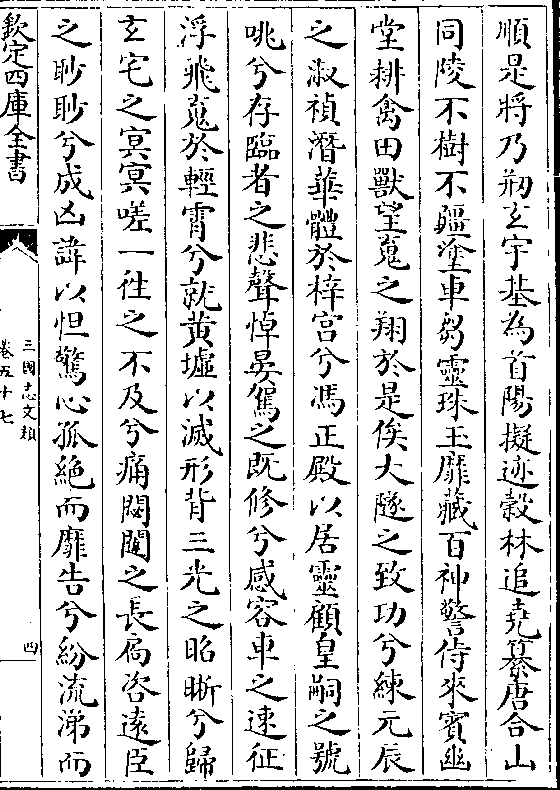 順是將乃剏玄宇基為首陽擬迹榖林追堯綦唐合山
同陵不樹不疆塗車芻靈珠玉靡藏百神警侍來賓幽
堂耕禽田獸望䰟之翔於是俟大隧之致功兮練元辰
之淑禎潛華體於梓宮兮馮正殿以居靈顧皇嗣之號
咷兮存臨者之悲聲悼晏駕之既修兮感容車之速征
浮飛䰟於輕霄兮就黄墟以滅形背三光之昭晰兮歸
玄宅之冥冥嗟一徃之不及兮痛閟闥之長扃咨遠臣
之眇眇兮成凶諱以怛驚心孤絶而靡告兮紛流涕而
欽定四庫全書
三國志文類
卷五十七
四